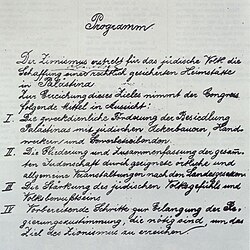 Programm
Der Zionismus erstrebt für das jüdische Volk die
Schaffung einer rechtlich gesicherten Heimstätte
in Palästina
Zur Erreichung dieses Zieles nimmt der Congress
folgende Mittel in Aussicht:
I. Die zweckdienliche Förderung der Besiedlung
Palästinas mit jüdischen Ackerbauern, Hand-
werkern und Gewerbetreibenden.
II. Die Gliederung und Zusammenfassung der gesam-
ten Judenschaft durch geeignete örtliche und
allgemeine Veranstaltungen nach den Landesgesetzen
III. Die Stärkung des jüdischen Volksgefühls und
Volksbewußtseins
IV. Vorbereitende Schritte zur Erlangung der Re-
gierungszustimmung, die nötig sind, um das
Ziel des Zionismus zu erreichen.